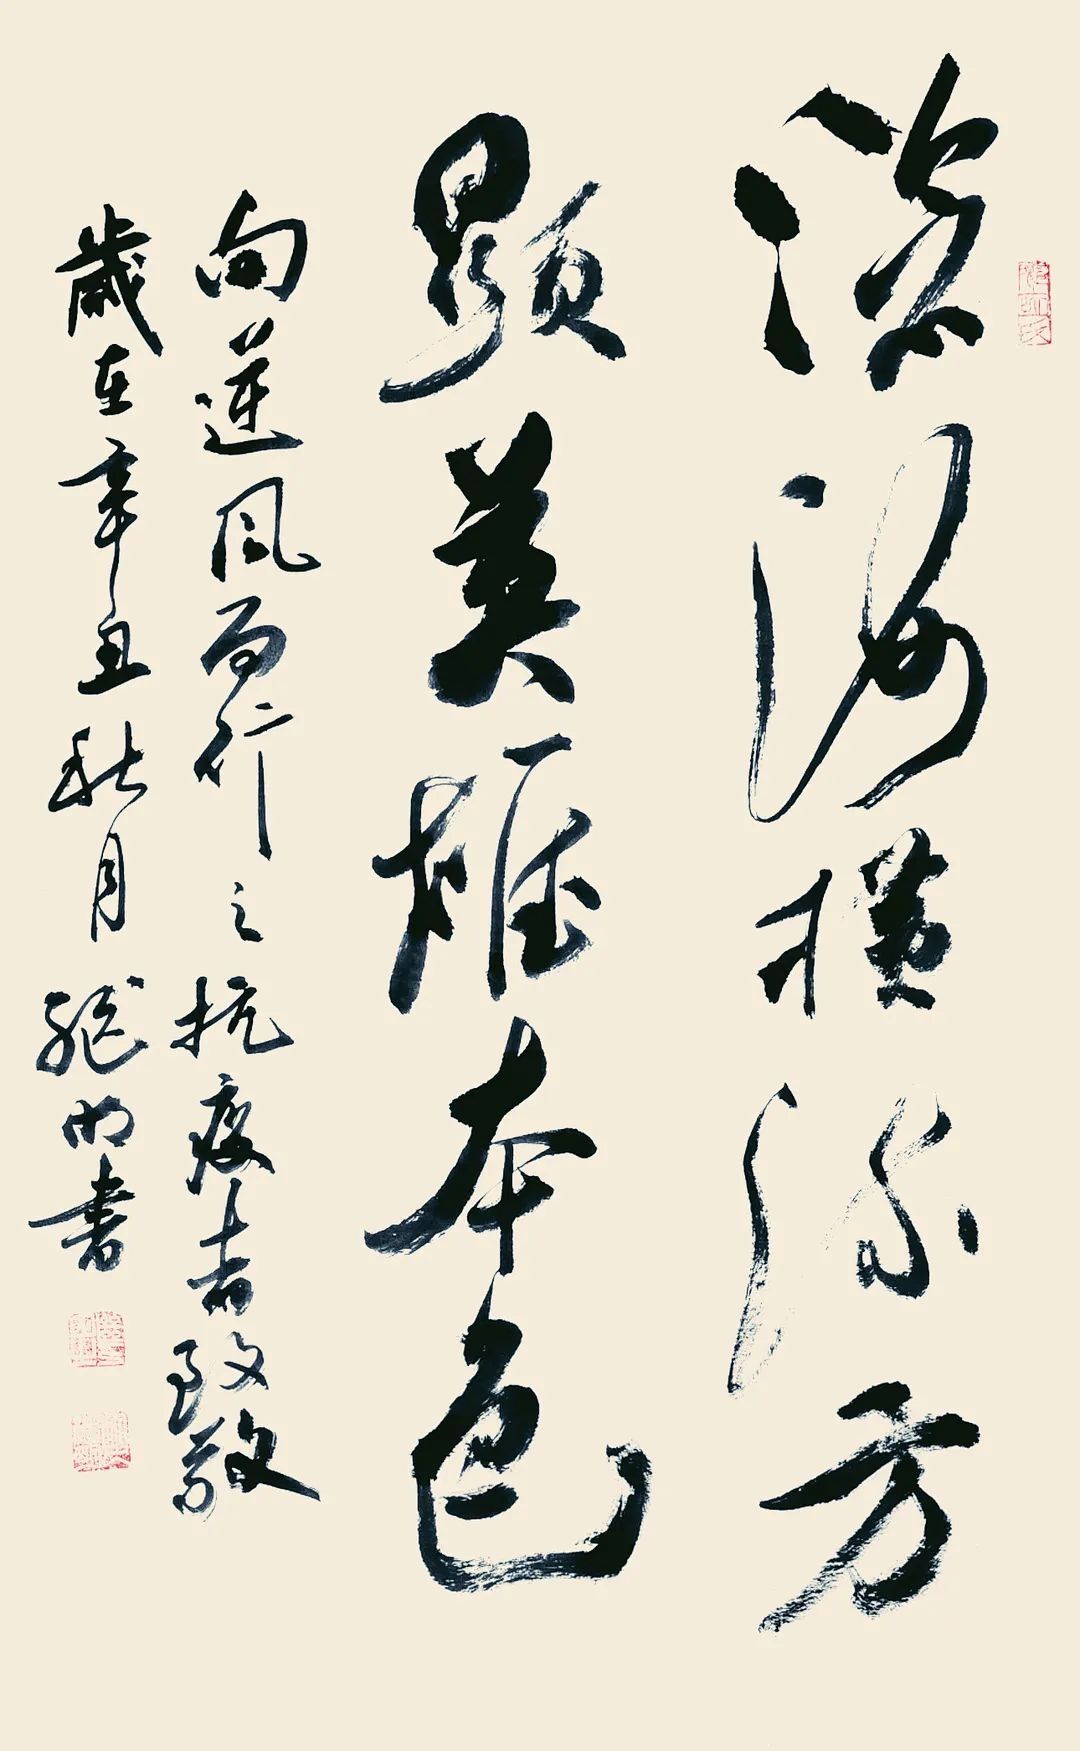 滄海橫流方
顯英雄本色
向逆风而行之抗疫者致敬
歲在辛丑秋月 明书